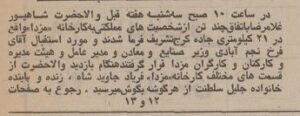 در ساعت ۱۰ صبح سه‌شنبه هفته قبل والاحضرت شاهپور
غلامرضا باتفاق چند تن از شخصیت های مملکتی به کارخانه «مزدا» واقع
در ۲۱ کیلومتری جاده کرج تشریف فرما شدند و مورد استقبال آقای
فرخ نجم آبادی وزیر صنایع و معادن و مدیر عامل و هیئت مدیره
و کارکنان و کارگران مزدا قرار گرفتند هنگام بازدید والاحضرت از
قسمت های مختلف کارخانه «مزدا» فریاد جاوید شاه ، زنده و پاینده
خانواده جلیل سلطنت از هر گوشه بگوش میرسید . رجوع به صفحات
۱۲ و ۱۳